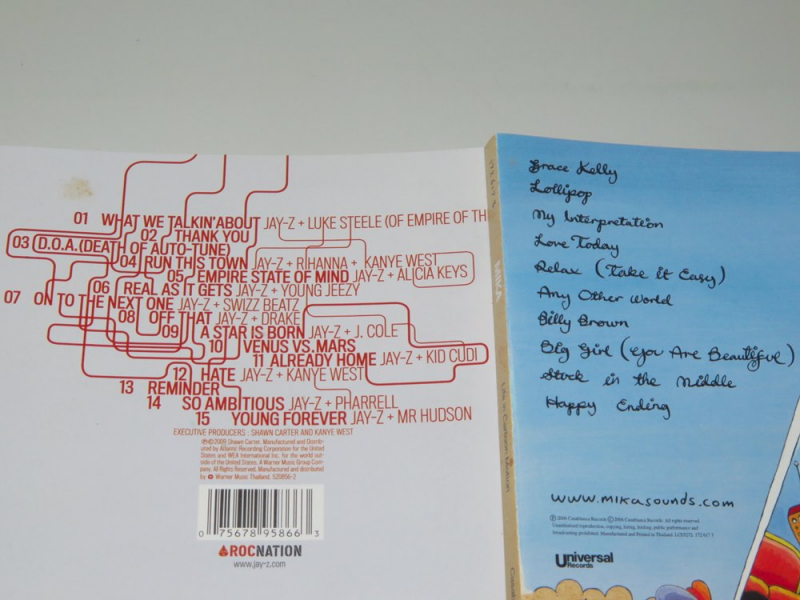 01 WHAT WE TALKIN' ABOUT JAY-Z + LUKE STEELE (OF EMPIRE OF TH
02 THANK YOU
03 D.O.A. (DEATH OF AUTO-TUNE)
04 RUN THIS TOWN JAY-Z + RIHANNA + KANYE WEST
05 EMPIRE STATE OF MIND JAY-Z + ALICIA KEYS
06 REAL AS IT GETS JAY-Z + YOUNG JEEZY
07 ON TO THE NEXT ONE JAY-Z + SWIZZ BEATZ
08 OFF THAT JAY-Z + DRAKE
09 A STAR IS BORN JAY-Z + J. COLE
10 VENUS VS. MARS
11 ALREADY HOME JAY-Z + KID CUDI
12 HATE JAY-Z + KANYE WEST
13 REMINDER
14 SO AMBITIOUS JAY-Z + PHARRELL
15 YOUNG FOREVER JAY-Z + MR HUDSON
EXECUTIVE PRODUCERS : SHAWN CARTER AND KANYE WEST
℗©2009 Shawn Carter. Manufactured and Distrib-
uted by Atlantic Recording Corporation for the United
States and WEA International Inc. for the world out-
side of the United States. A Warner Music Group Com-
pany. All Rights Reserved. Manufactured and distributed
by Warner Music Thailand. 520856-2
0 75678 95866 3
ROCNATION
www.jay-z.com
MIKA
Life in Cartoon Motion
Grace Kelly
Lollipop
My Interpretation
Love Today
Relax (Take it Easy)
Any Other World
Billy Brown
Big Girl (You Are Beautiful)
Stuck in the Middle
Happy Ending
www.mikasounds.com
Universal
Records